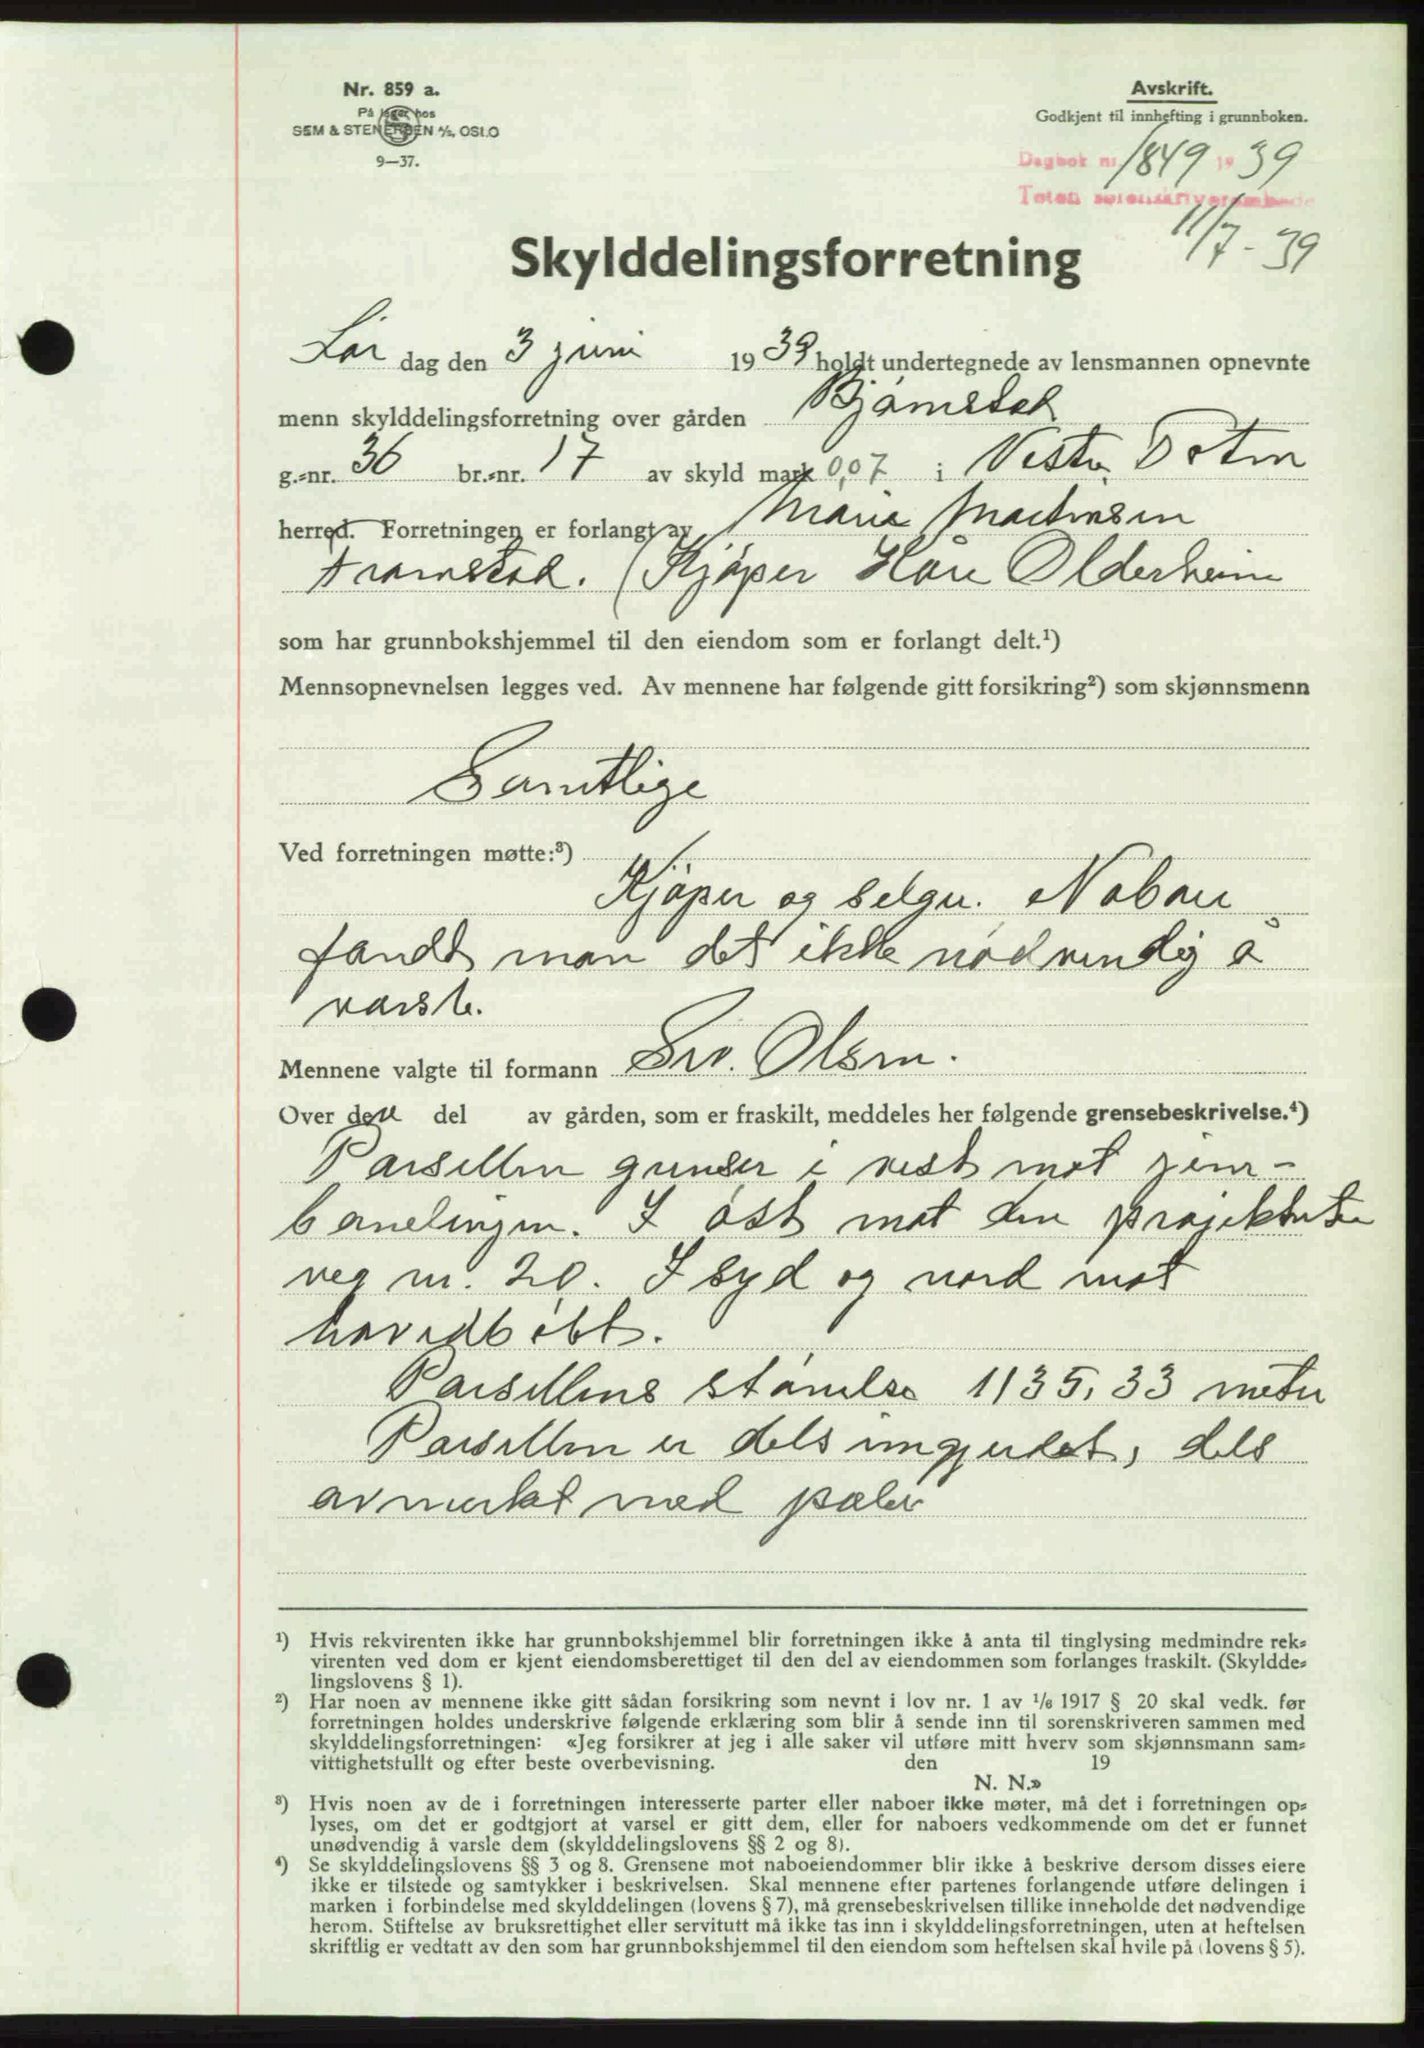 Nr. 859 a.
På lager hos
SEM & STENERSEN A/S, OSLO
9—37.
Avskrift.
Godkjent til innhefting i grunnboken.
Dagbok nr. 1849 1939
Toten sorenskriverembede
11/7 - 39
Skylddelingsforretning
Lør dag den 3 juni 1939 holdt undertegnede av lensmannen opnevnte
menn skylddelingsforretning over gården Bjørnstad
g.=nr. 36 br.=nr. 17 av skyld mark 0,07 i Vestre Toten
herred. Forretningen er forlangt av Marie Martinsen
Framstad. (Kjøper Kåre Olderheim
som har grunnbokshjemmel til den eiendom som er forlangt delt.¹)
Mennsopnevnelsen legges ved. Av mennene har følgende gitt forsikring²) som skjønnsmenn
Samtlige
Ved forretningen møtte:³)
Kjøper og selger. Naboer
fandt man det ikke nødvendig å
varsle.
Mennene valgte til formann Sev. Olsen.
Over den del av gården, som er fraskilt, meddeles her følgende grensebeskrivelse.⁴)
Parsellen grenser i vest mot jern-
banelinjen. I øst mot den projekterte
veg nr. 20. I syd og nord mot
hovedbølet.
Parsellens størrelse 1135,33 meter
Parsellen er dels inngjerdet, dels
avmerket med pæler
¹) Hvis rekvirenten ikke har grunnbokshjemmel blir forretningen ikke å anta til tinglysing medmindre rek=
virenten ved dom er kjent eiendomsberettiget til den del av eiendommen som forlanges fraskilt. (Skyldde=
lingslovens § 1).
²) Har noen av mennene ikke gitt sådan forsikring som nevnt i lov nr. 1 av ¹/₆ 1917 § 20 skal vedk. før
forretningen holdes underskrive følgende erklæring som blir å sende inn til sorenskriveren sammen med
skylddelingsforretningen: «Jeg forsikrer at jeg i alle saker vil utføre mitt hverv som skjønnsmann sam=
vittighetsfullt og efter beste overbevisning. den 19
N. N.»
³) Hvis noen av de i forretningen interesserte parter eller naboer ikke møter, må det i forretningen op=
lyses, om det er godtgjort at varsel er gitt dem, eller for naboers vedkommende om det er funnet
unødvendig å varsle dem (skylddelingslovens §§ 2 og 8).
⁴) Se skylddelingslovens §§ 3 og 8. Grensene mot naboeiendommer blir ikke å beskrive dersom disses eiere
ikke er tilstede og samtykker i beskrivelsen. Skal mennene efter partenes forlangende utføre delingen i
marken i forbindelse med skylddelingen (lovens § 7), må grensebeskrivelsen tillike inneholde det nødvendige
herom. Stiftelse av bruksrettighet eller servitutt må ikke tas inn i skylddelingsforretningen, uten at heftelsen
skriftlig er vedtatt av den som har grunnbokshjemmel til den eiendom som heftelsen skal hvile på (lovens § 5).